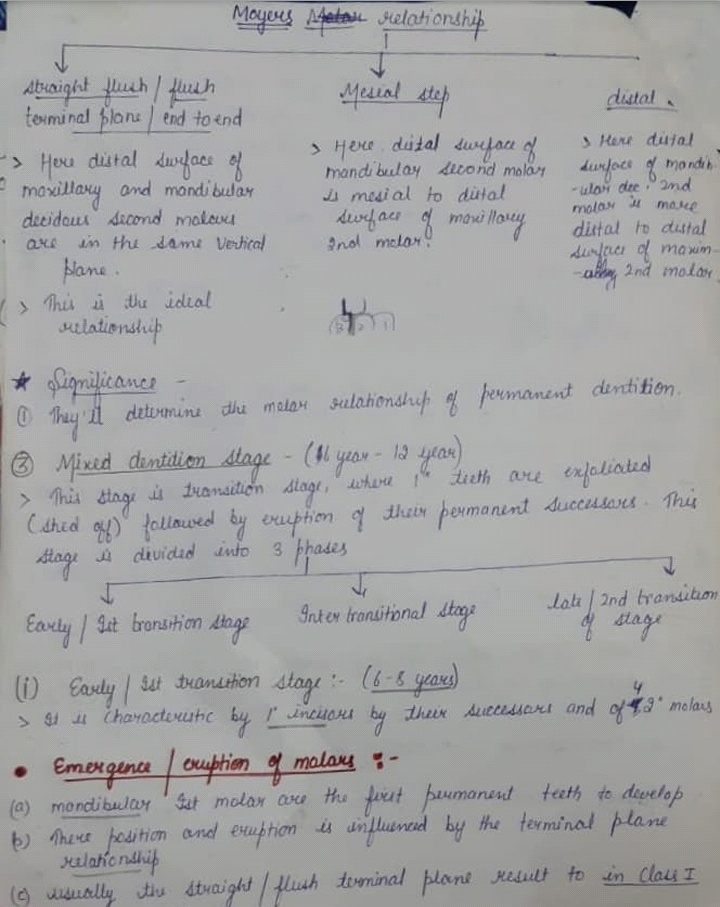 Moyers Molar relationship
straight flush / flush
terminal plane / end to end
> Here distal surface of
maxillary and mandibular
decidous second molars
are in the same vertical
plane.
> This is the ideal
relationship
Mesial step
> Here distal surface of
mandibular second molar
is mesial to distal
surface of maxillary
2nd molar.
distal.
> Here distal
surface of mandib
-ular dec. 2nd
molar is more
distal to distal
surface of maxim-
2nd molar.
★ Significance -
① They'll determine the molar relationship of permanent dentition.
③ Mixed dentition stage - (6 year - 12 year)
> This stage is transition stage, where 1° teeth are exfoliated
(shed off) followed by eruption of their permanent successors. This
stage is divided into 3 phases
Early / Ist transition stage
Inter transitional stage
late / 2nd transition
of stage
(i) Early / Ist transition stage :- (6-8 years)
> It is characteristic by 1° incisors by their successors and of 4 2° molars
• Emergence / eruption of molars :-
(a) mandibular Ist molar are the first permanent teeth to develop
b) There position and eruption is influenced by the terminal plane
relationship
(c) usually the straight / flush terminal plane result to in Class I